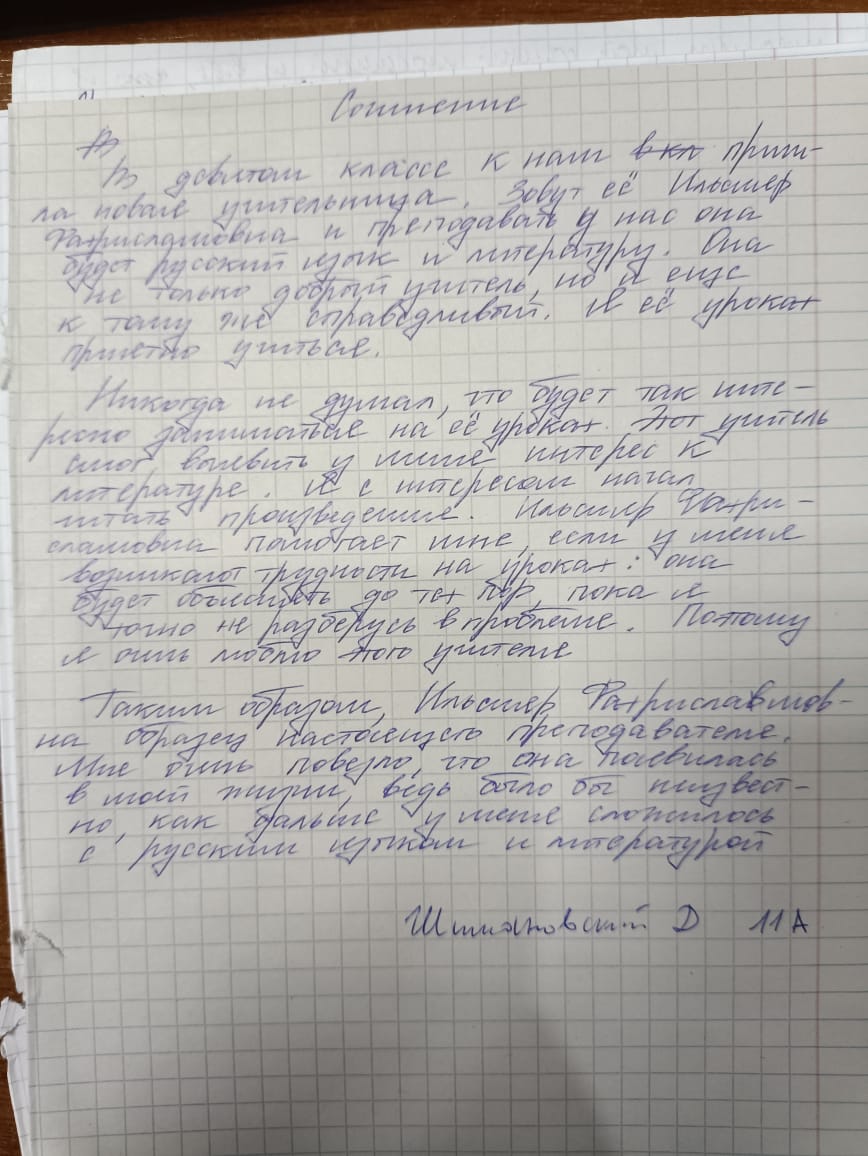 Сочинение
В
В девятом классе к нам в кл приш-
ла новая учительница. Зовут её Ильсияр
Фахрисламовна и преподавать у нас она
будет русский язык и литературу. Она
не только добрый учитель, но и еще
к тому же справедливый. И её уроках
приятно учиться.
Никогда не думал, что будет так инте-
ресно заниматься на её уроках. Этот учитель
смог выявить у меня интерес к
литературе. Я с интересом начал
читать произведения. Ильсияр Фахри-
сламовна помогает мне, если у меня
возникают трудности на уроках: она
будет объяснять до тех пор, пока я
точно не разберусь в проблеме. Поэтому
я очень люблю этого учителя
Таким образом, Ильсияр Фахриславмов-
на образец настоящего преподавателя.
Мне очень повезло, что она появилась
в моей жизни, ведь было бы неизвест-
но, как дальше у меня сложилось
с русским языком и литературой
Шимановский Д 11А